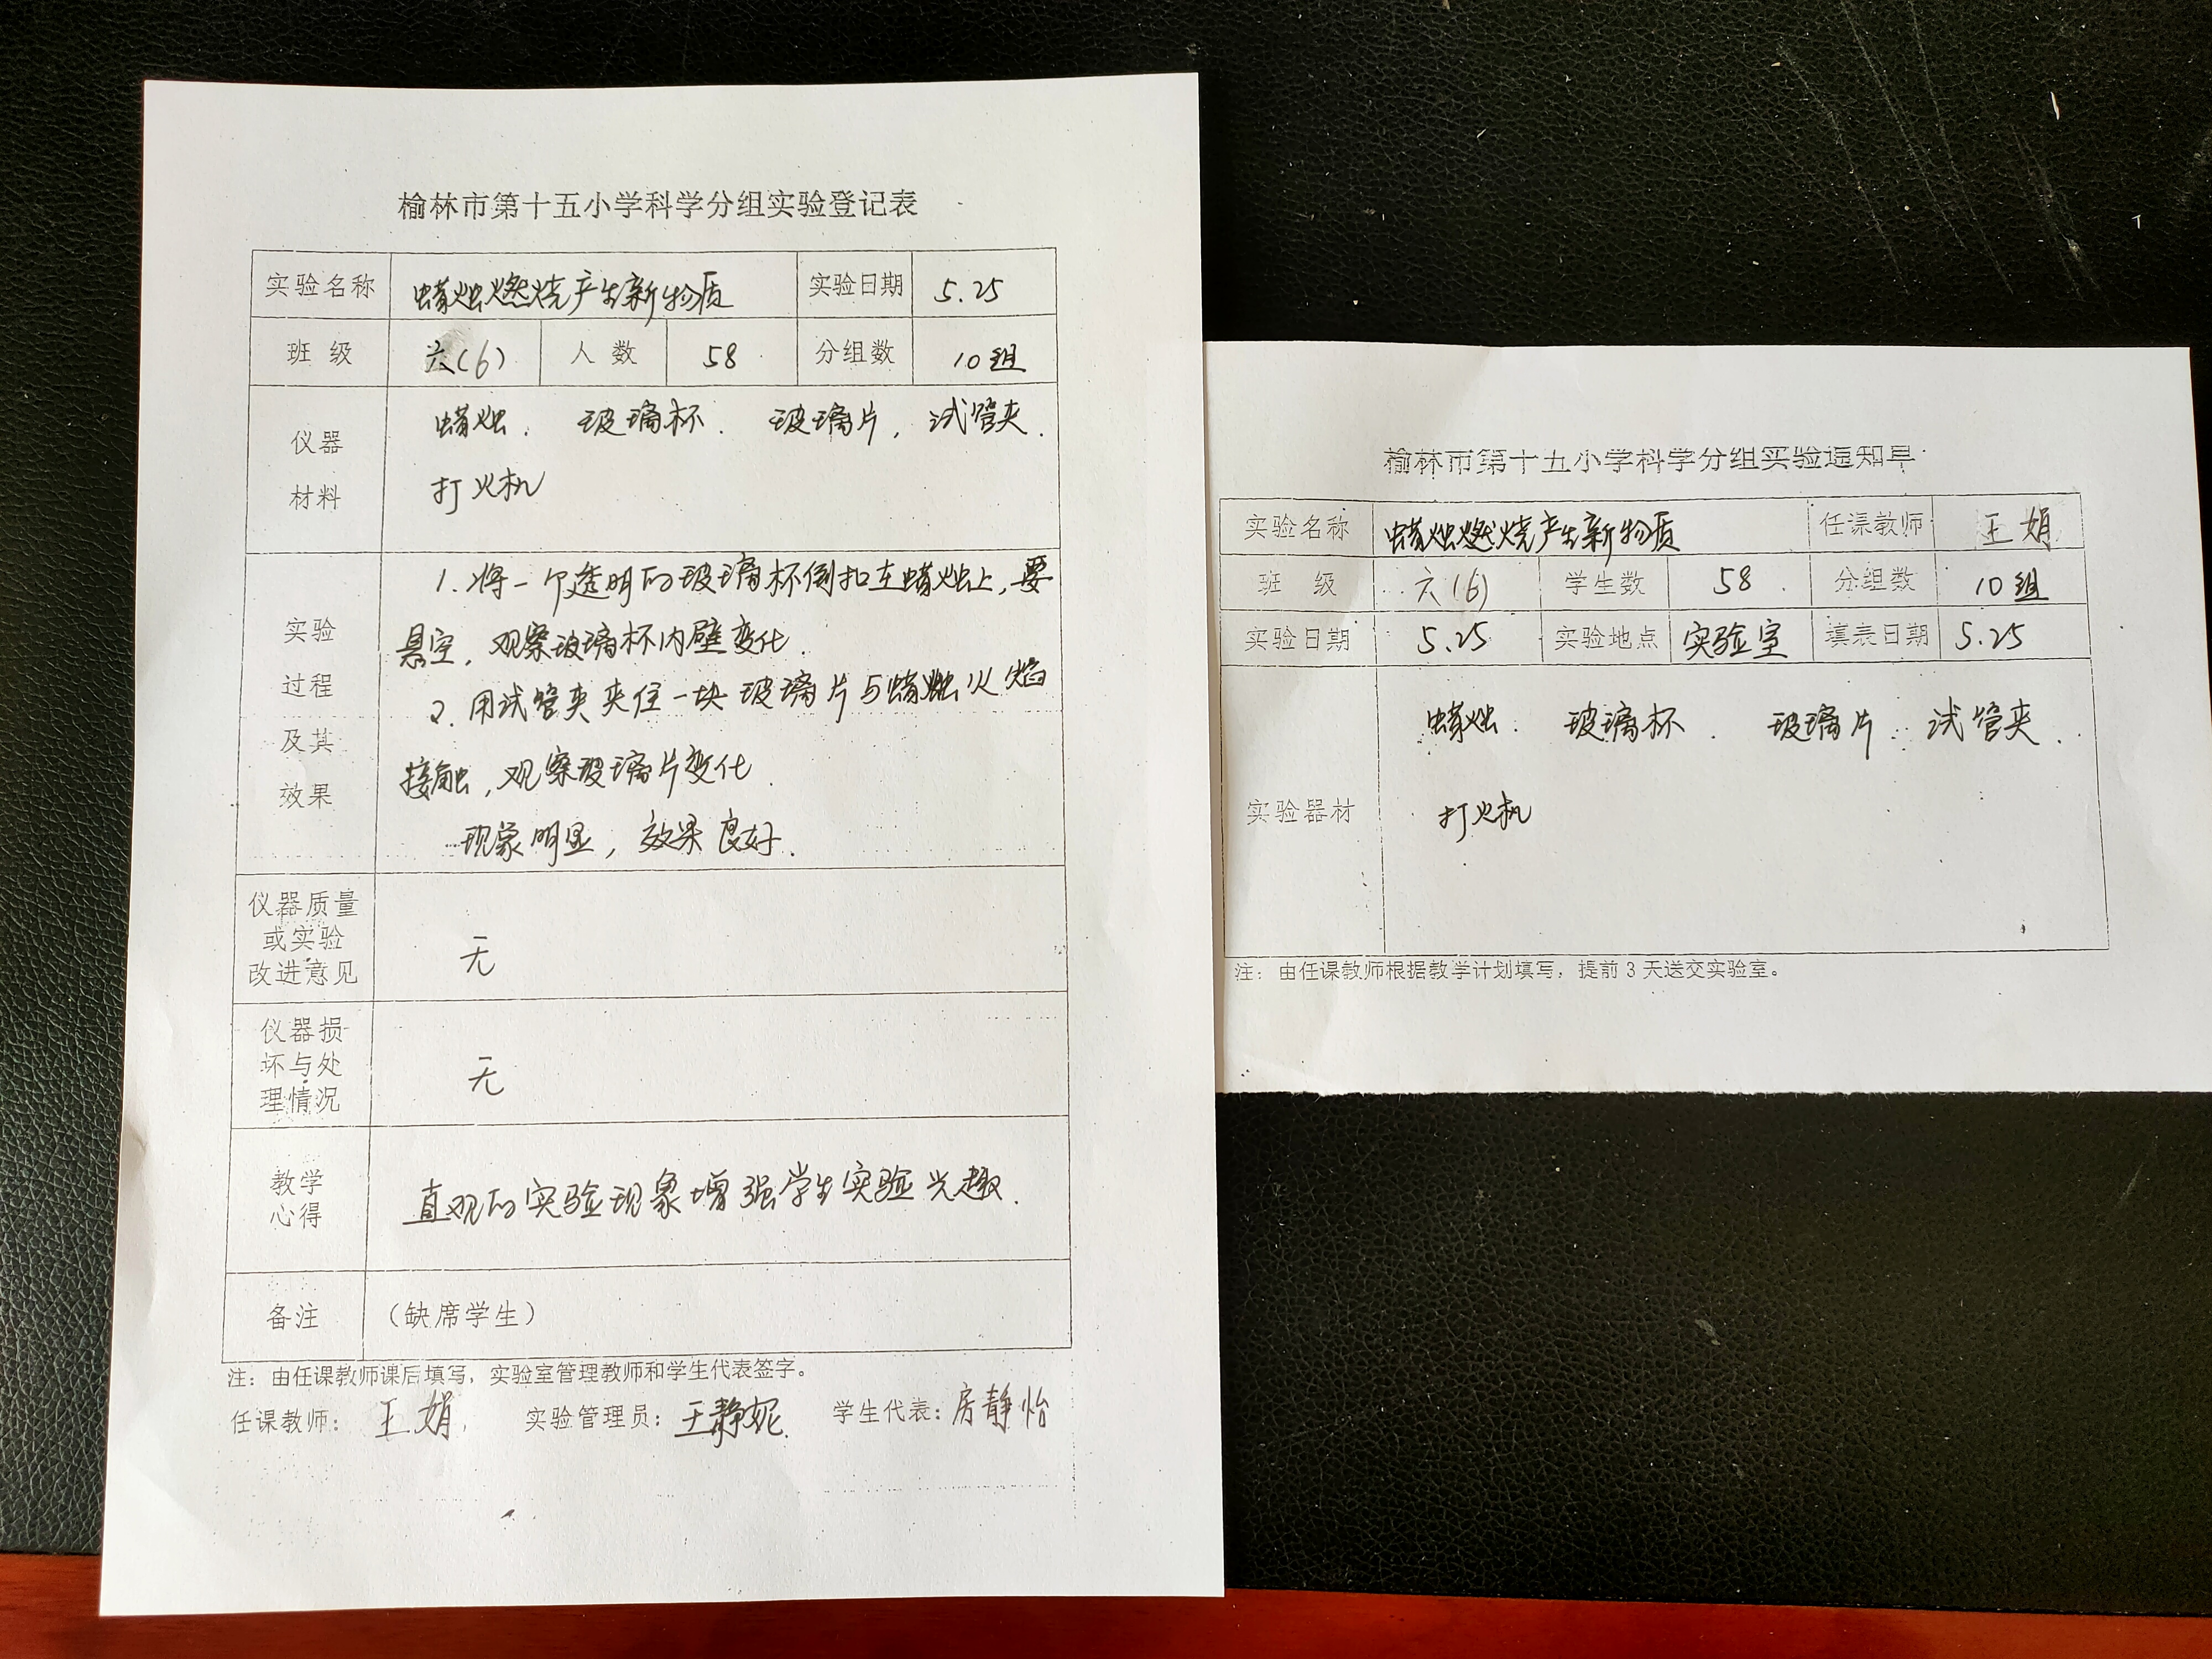 榆林市第十五小学科学分组实验登记表
实验名称 蜡烛燃烧产生新物质 实验日期 5.25
班 级 六(6) 人 数 58 分组数 10组
仪器 材料 蜡烛. 玻璃杯. 玻璃片, 试管夹.
打火机
实验 过程 及其 效果 1.将一个透明的玻璃杯倒扣在蜡烛上,要
悬空,观察玻璃杯内壁变化.
2.用试管夹夹住一块玻璃片与蜡烛火焰
接触,观察玻璃片变化.
现象明显,效果良好.
仪器质量
或实验
改进意见 无
仪器损
坏与处
理情况 无
教学
心得 直观的实验现象增强学生实验兴趣.
备注 (缺席学生)
注:由任课教师课后填写,实验室管理教师和学生代表签字。
任课教师: 王娟. 实验管理员: 王静妮. 学生代表: 房静怡
榆林市第十五小学科学分组实验通知单
实验名称 蜡烛燃烧产生新物质 任课教师 王娟
班 级 六(6) 学生数 58. 分组数 10组
实验日期 5.25 实验地点 实验室 填表日期 5.25
实验器材 蜡烛. 玻璃杯. 玻璃片. 试管夹.
打火机
注:由任课教师根据教学计划填写,提前3天送交实验室。